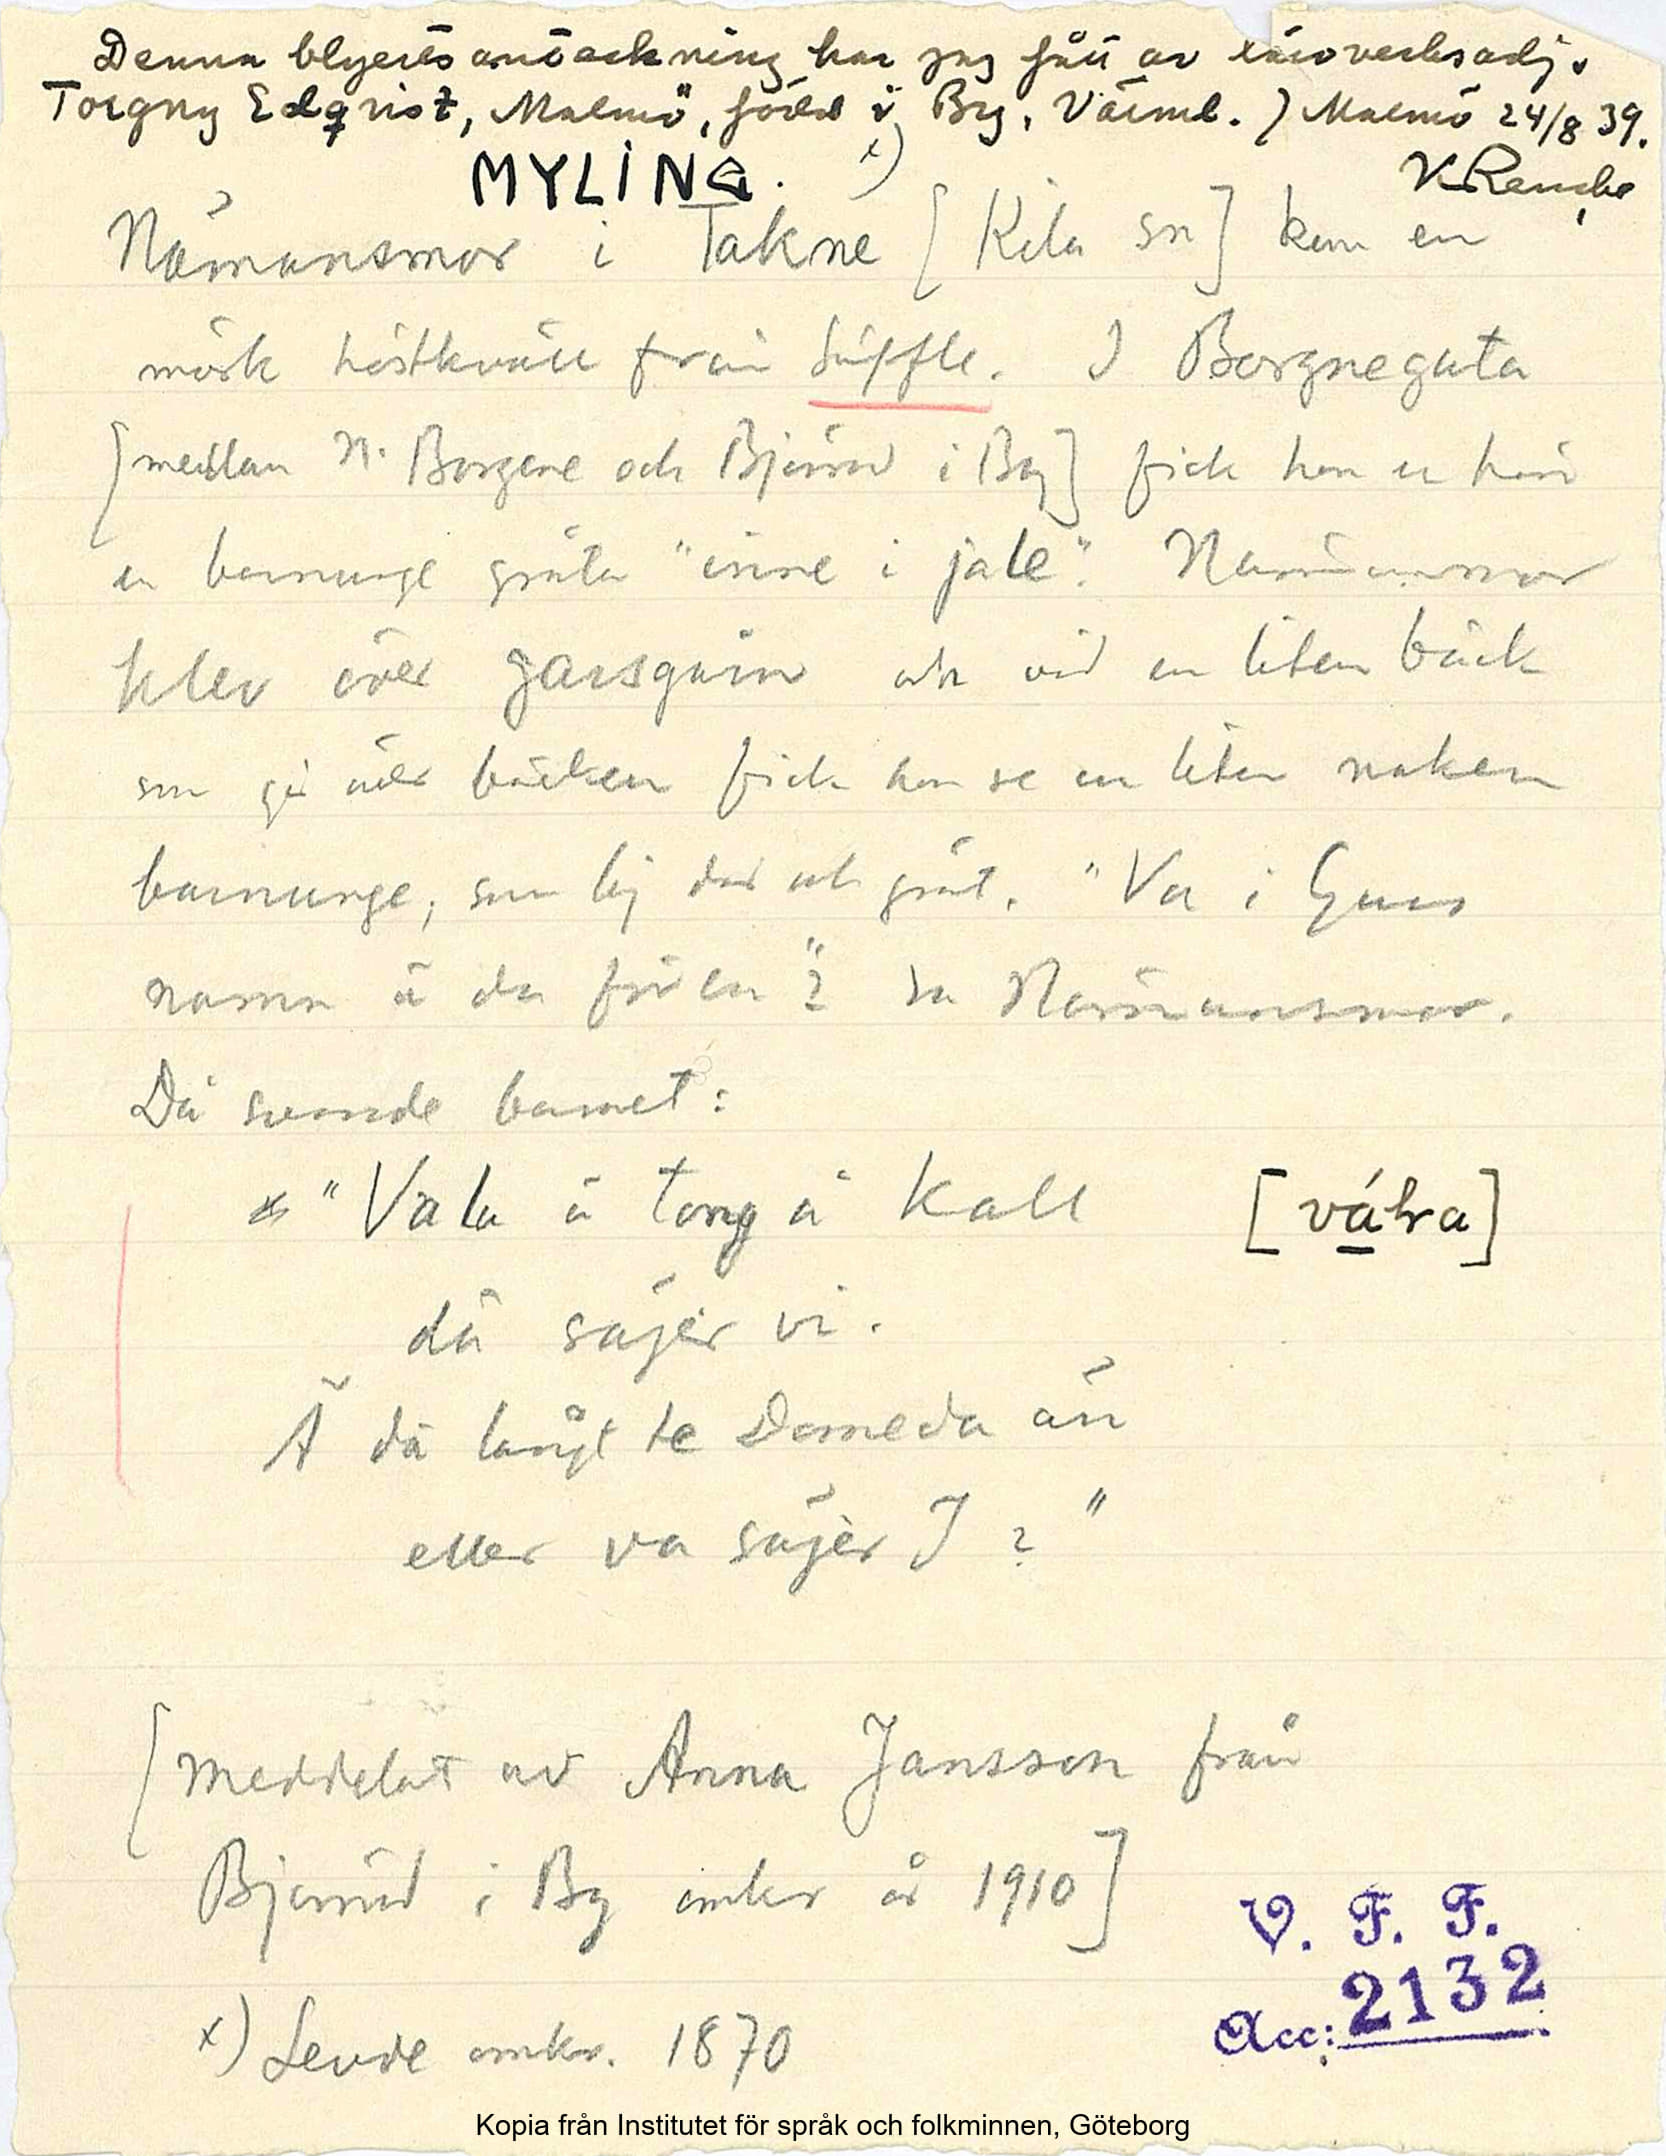 Denna blyertsanteckning har jag fått av läroverksadj.
Torgny Edqvist, Malmö, född i By, Värml. / Malmö 24/8 39.
MYLING. x)
Nämansmor i Takne [Kila sn] kom en
mörk höstkväll från Säffle. I Borgnegata
[mellan N. Borgene och Bjärrud i By] fick hon er höra
en barnunge gråta "inne i jale".
klev över garsgårn och vid en liten bäck
som går över bäcken fick hon se en liten naken
barnunge, som låg där och grät. "Va i Guss
namn ä da för en"? sa
Då svarade barnet:
"Vala å tong å kall [váḷra]
dä säjer vi.
Ä dä långt te Domeda än
eller va säjer I ?"
[meddelat av Anna Jansson från
Bjärrud i By omkr år 1910]
x) Levde omkr. 1870
V. F. F.
Acc: 2132
Kopia från Institutet för språk och folkminnen, Göteborg